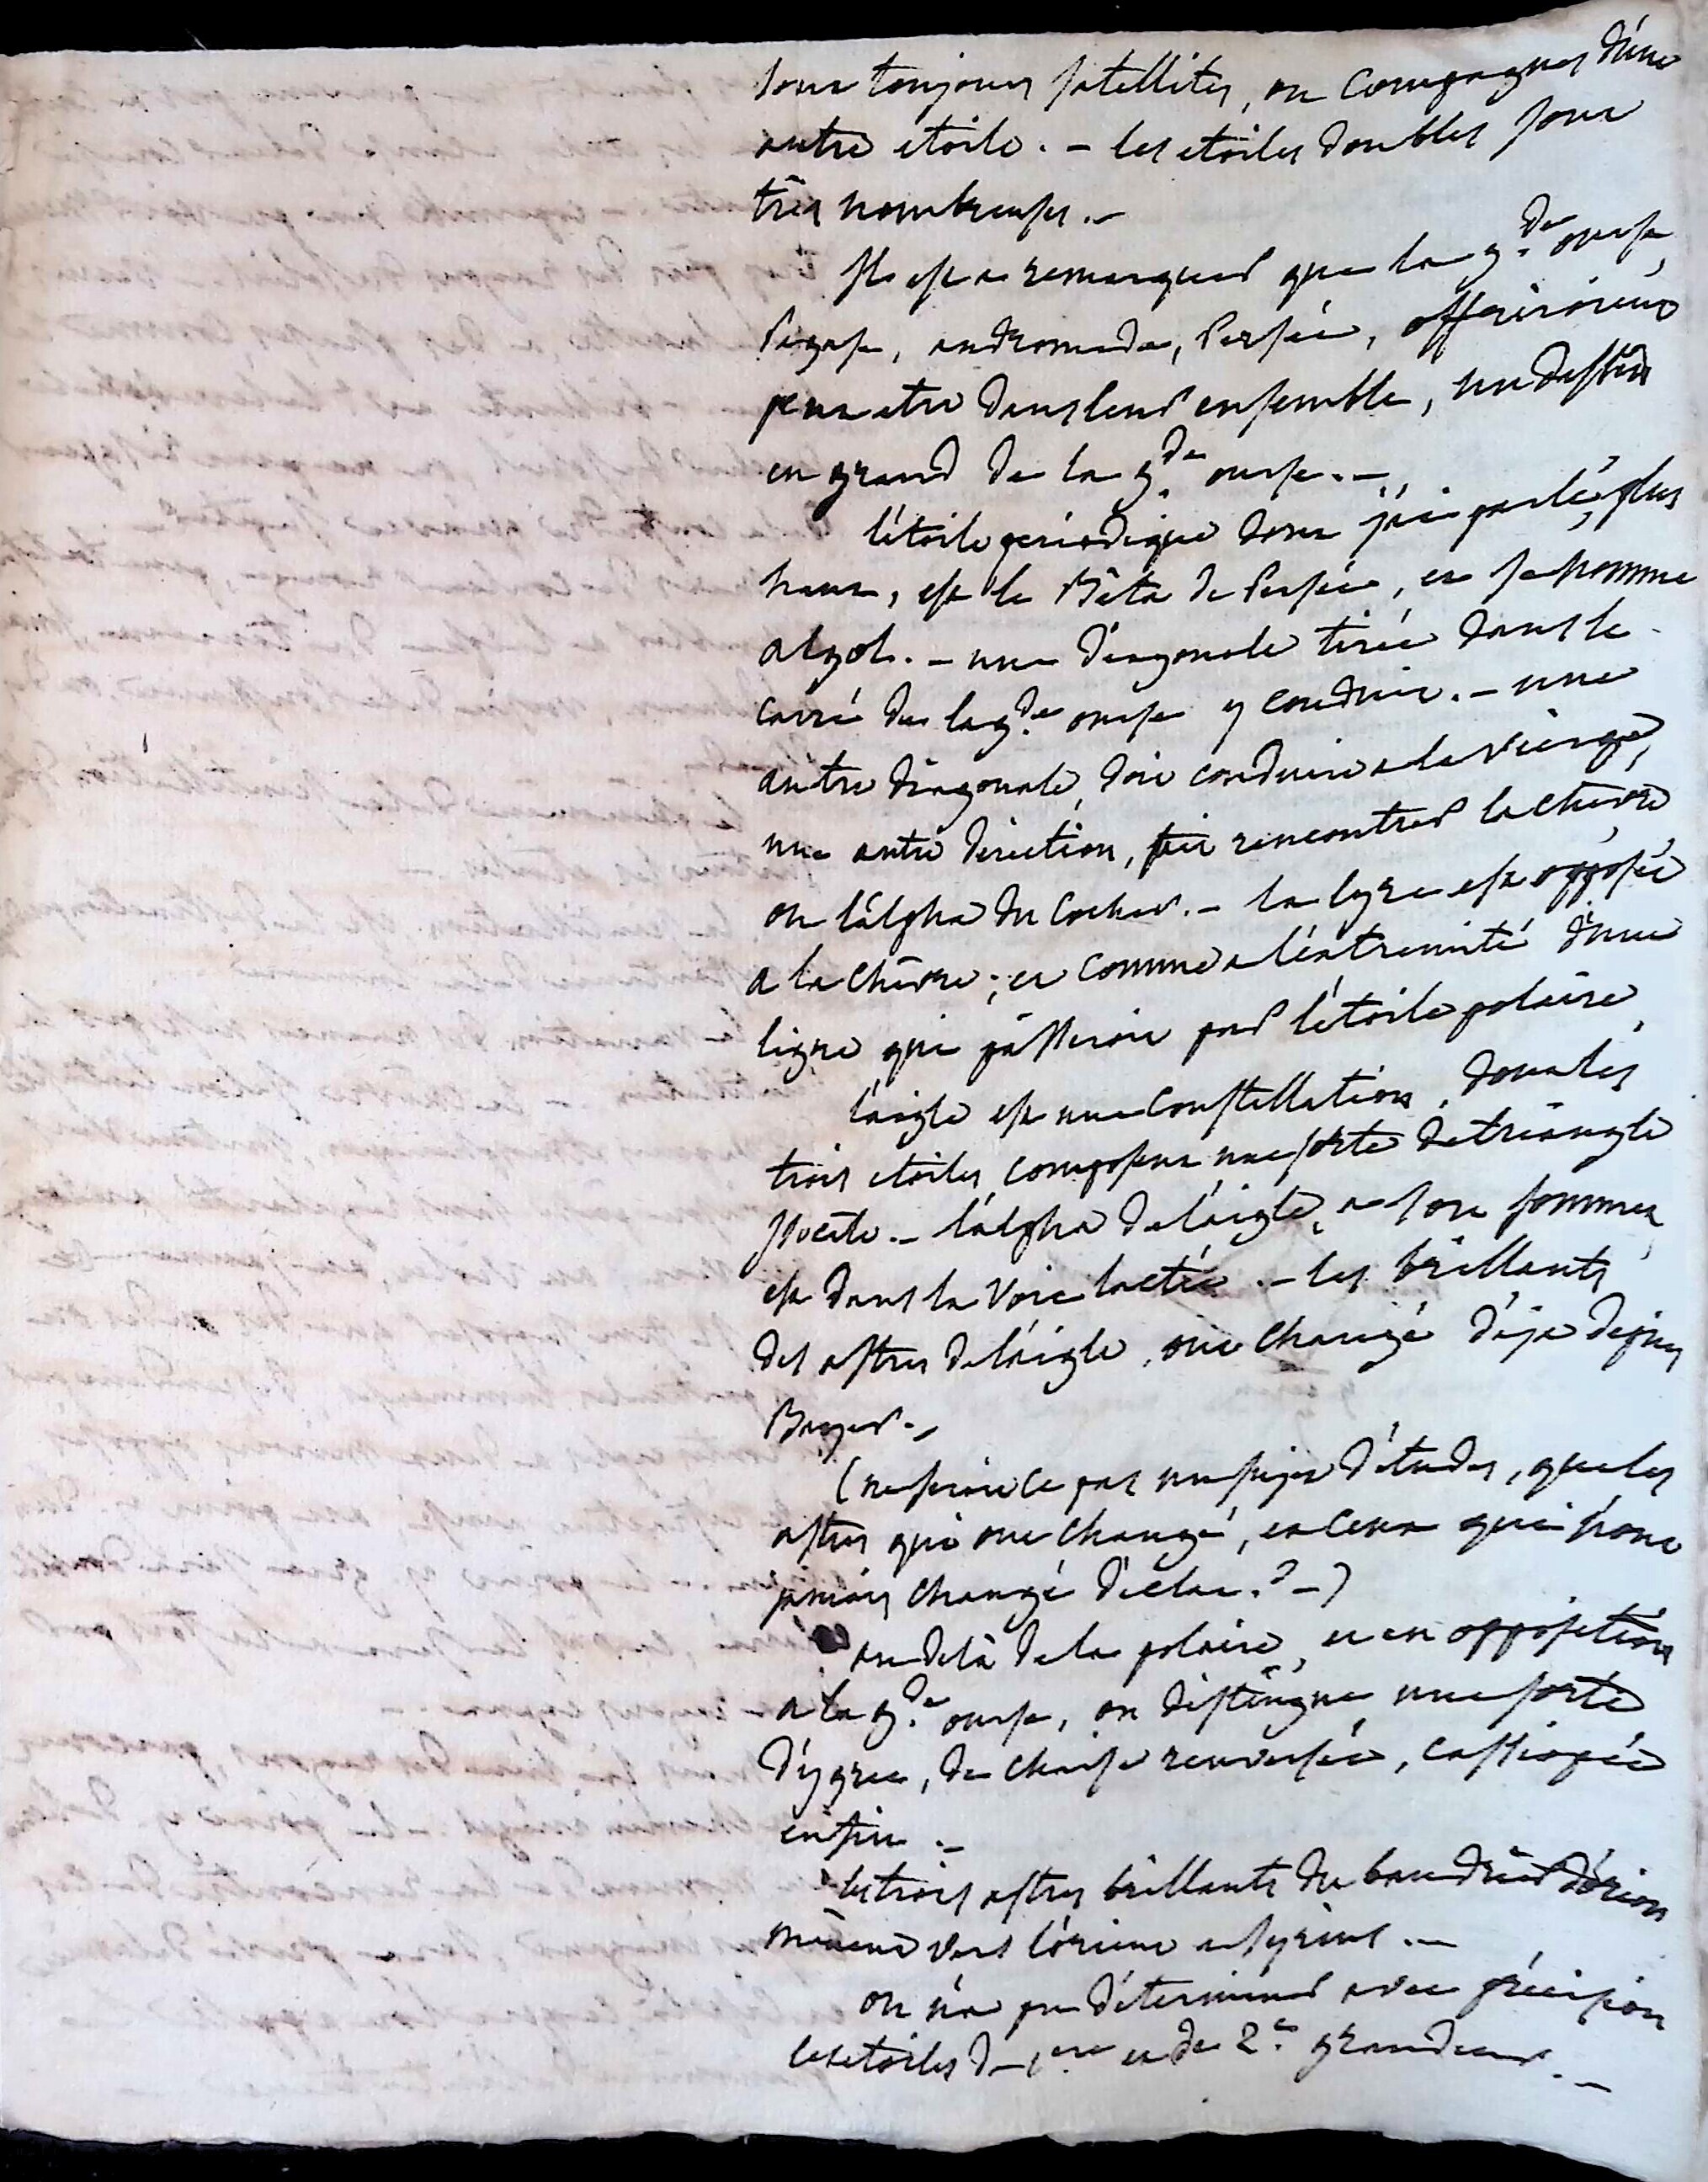 sont toujours satellites, ou compagnes d'une
autre etoile. – les etoiles doubles sont
très nombreuses. –
Il est a remarquer que la g.de ourse,
Pegase, andromede, Persée, offriroient
peut etre dans leur ensemble, un dessin
en grand de la g.de ourse. –
l'étoile périodique dont j'ai parlé plus
haut, est le Bêta de Persée, et se nomme
algol. – une diagonale tirée dans le
carré de la g.de ourse y conduit. – une
autre diagonale, doit conduire a la Vierge,
une autre direction, fait rencontrer la chèvre
ou l'alpha du Cocher. – la lyre est opposée
a la chèvre, et comme a l'extremité d'une
ligne qui passeroit par l'étoile polaire,
l'aigle est une constellation, dont les
trois etoiles composent une sorte de triangle
isocele. – l'alpha de l'aigle, a son sommet,
est dans la voie lactée. – les brillants
des astres de l'aigle, ont changé déja depuis
Bayer. –
(ne seroit ce pas un sujet d'études, que les
astres qui ont changé, et ceux qui n'ont
jamais changé d'eclat. ? –)
au delà de la polaire, et en opposition
a la g.de ourse, on distingue une sorte
d'ygrec, de chaise renversée, cassiopée
enfin. –
les trois astres brillants du baudrier d'orion
mènent vers l'orient a syrius. –
on n'a pu déterminer avec précision
les etoiles de 1ere et de 2.e grandeur. –